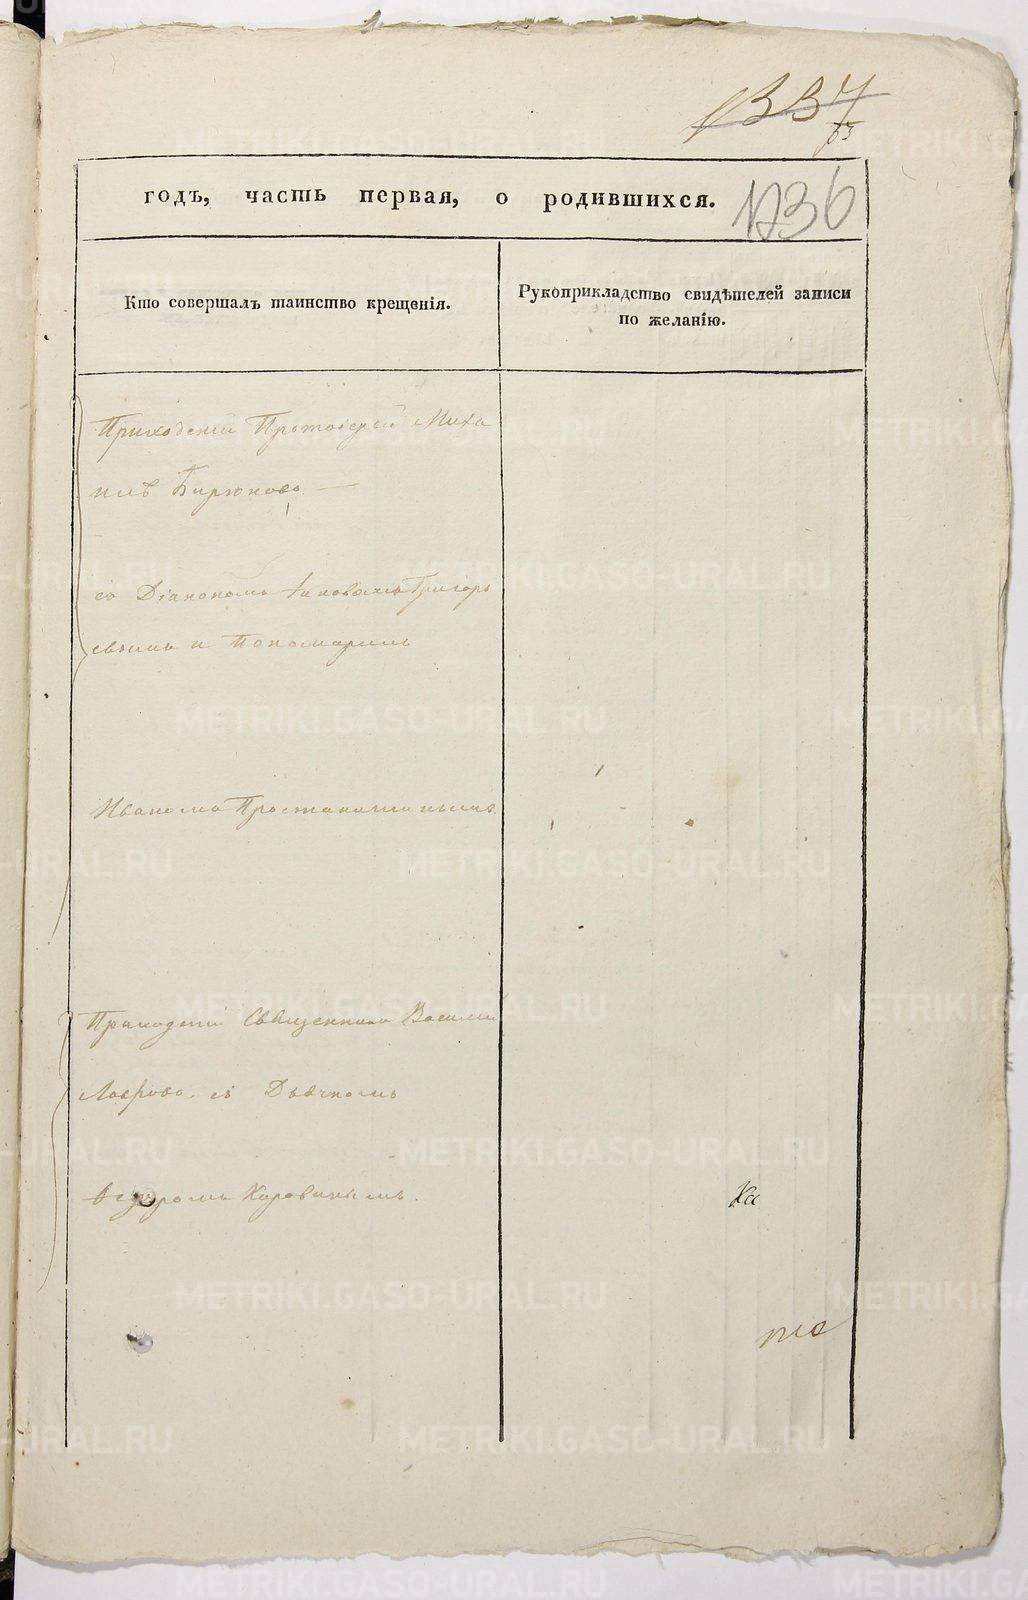 1337
годъ, часть первая, о родившихся.
1236
Кто совершалъ таинство крещенія.
Рукоприкладство свидѣтелей записи
по желанію.
Приходскій Протоіерей Миха
илъ Бирюковъ.
съ Діакономъ Григорь
евымъ и Пономаремъ
Иваномъ
Приходскій Священникъ Василій
Лавровъ съ Дьячкомъ
Ѳедоромъ Коровинымъ.
METRIKI.GASO-URAL.RU